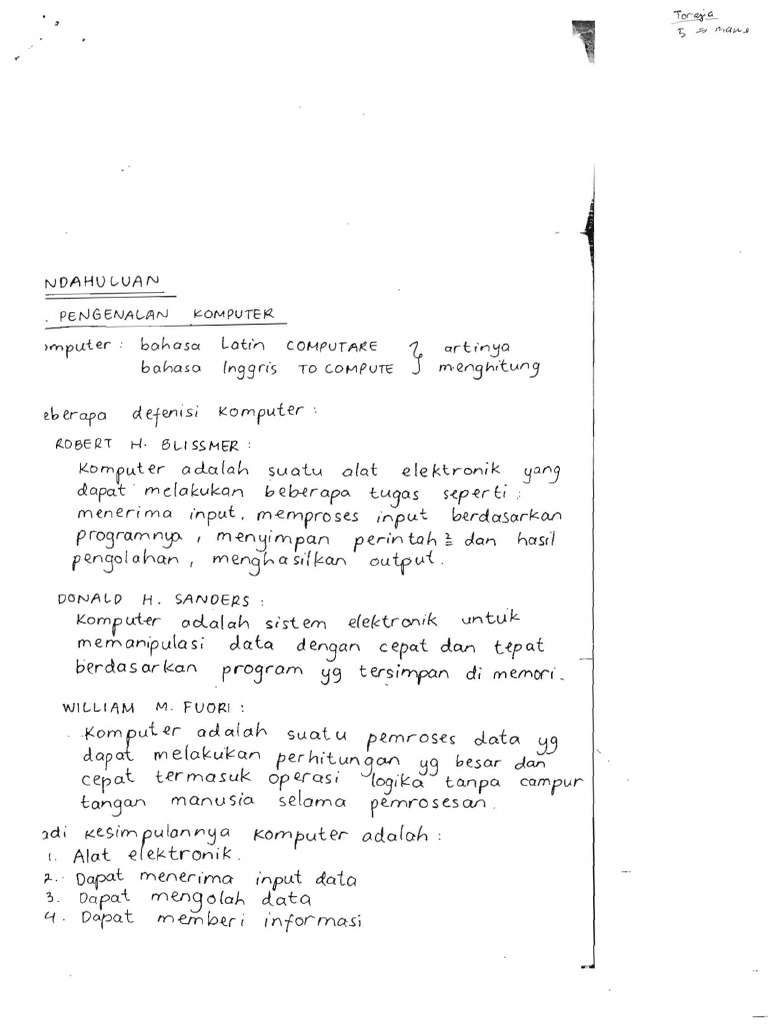 Toraja
5 ⇒
NDAHULUAN
. PENGENALAN KOMPUTER
omputer : bahasa Latin COMPUTARE } artinya
bahasa Inggris TO COMPUTE } menghitung
eberapa defenisi komputer :
ROBERT H. BLISSMER :
Komputer adalah suatu alat elektronik yang
dapat melakukan beberapa tugas seperti :
menerima input, memproses input berdasarkan
programnya, menyimpan perintah² dan hasil
pengolahan, menghasilkan output.
DONALD H. SANDERS :
Komputer adalah sistem elektronik untuk
memanipulasi data dengan cepat dan tepat
berdasarkan program yg tersimpan di memori.
WILLIAM M. FUORI :
Komputer adalah suatu pemroses data yg
dapat melakukan perhitungan yg besar dan
cepat termasuk operasi logika tanpa campur
tangan manusia selama pemrosesan.
adi kesimpulannya komputer adalah :
1. Alat elektronik.
2. Dapat menerima input data
3. Dapat mengolah data
4. Dapat memberi informasi